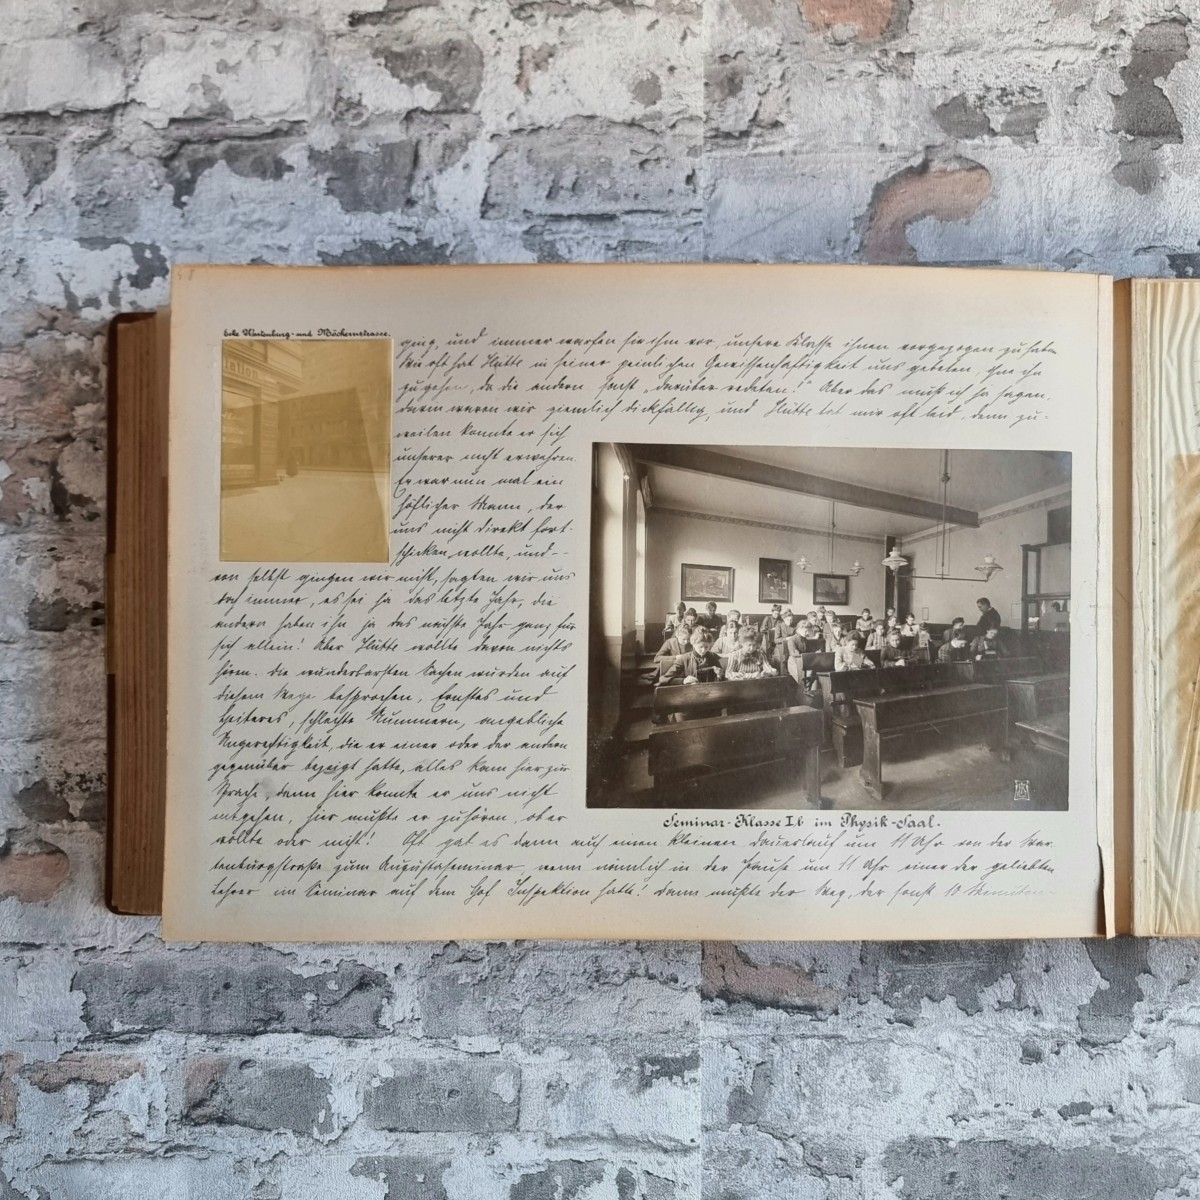 Ecke Wartenburg- und Möckernstrasse.
ging, und immer warfen sie ihm vor, unsere Klasse ihnen vorgezogen zu haben.
Wie oft hat Hütte in seiner peinlichen Gewissenhaftigkeit uns gebeten,
zu gehen, da die andern sonst "darüber redeten!" Aber das muß ich ja sagen,
darin waren wir ziemlich dickfällig, und Hütte tat mir oft leid, denn zu-
weilen konnte er sich
unserer nicht erwehren.
Er war nun mal ein
höflicher Mann, der
uns nicht direkt fort-
schicken wollte, und -
von selbst gingen wir nicht, sagten wir uns
doch immer, es sei ja das letzte Jahr, die
andern haben ihn ja das nächste Jahr ganz für
sich allein! Aber Hütte wollte davon nichts
hören. Die wunderbarsten Sachen wurden auf
diesem Wege besprochen, Ernstes und
Heiteres, schlechte Nummern, angebliche
Ungerechtigkeit, die er einer oder der andern
gegenüber bezeigt hatte, alles kam hier zur
Sprache, denn hier konnte er uns nicht
entgehen, hier mußte er zuhören, ob er
wollte oder nicht! Oft gab es dann auch einen kleinen Dauerlauf um 11 Uhr von der War-
tenburgstraße zum Augustaseminar, wenn nämlich in der Pause um 11 Uhr einer der geliebten
Lehrer im Seminar auf dem Hof Inspektion hatte! Dann mußte der Weg, der sonst 10 Minuten
Seminar-Klasse I,b im Physik-Saal.